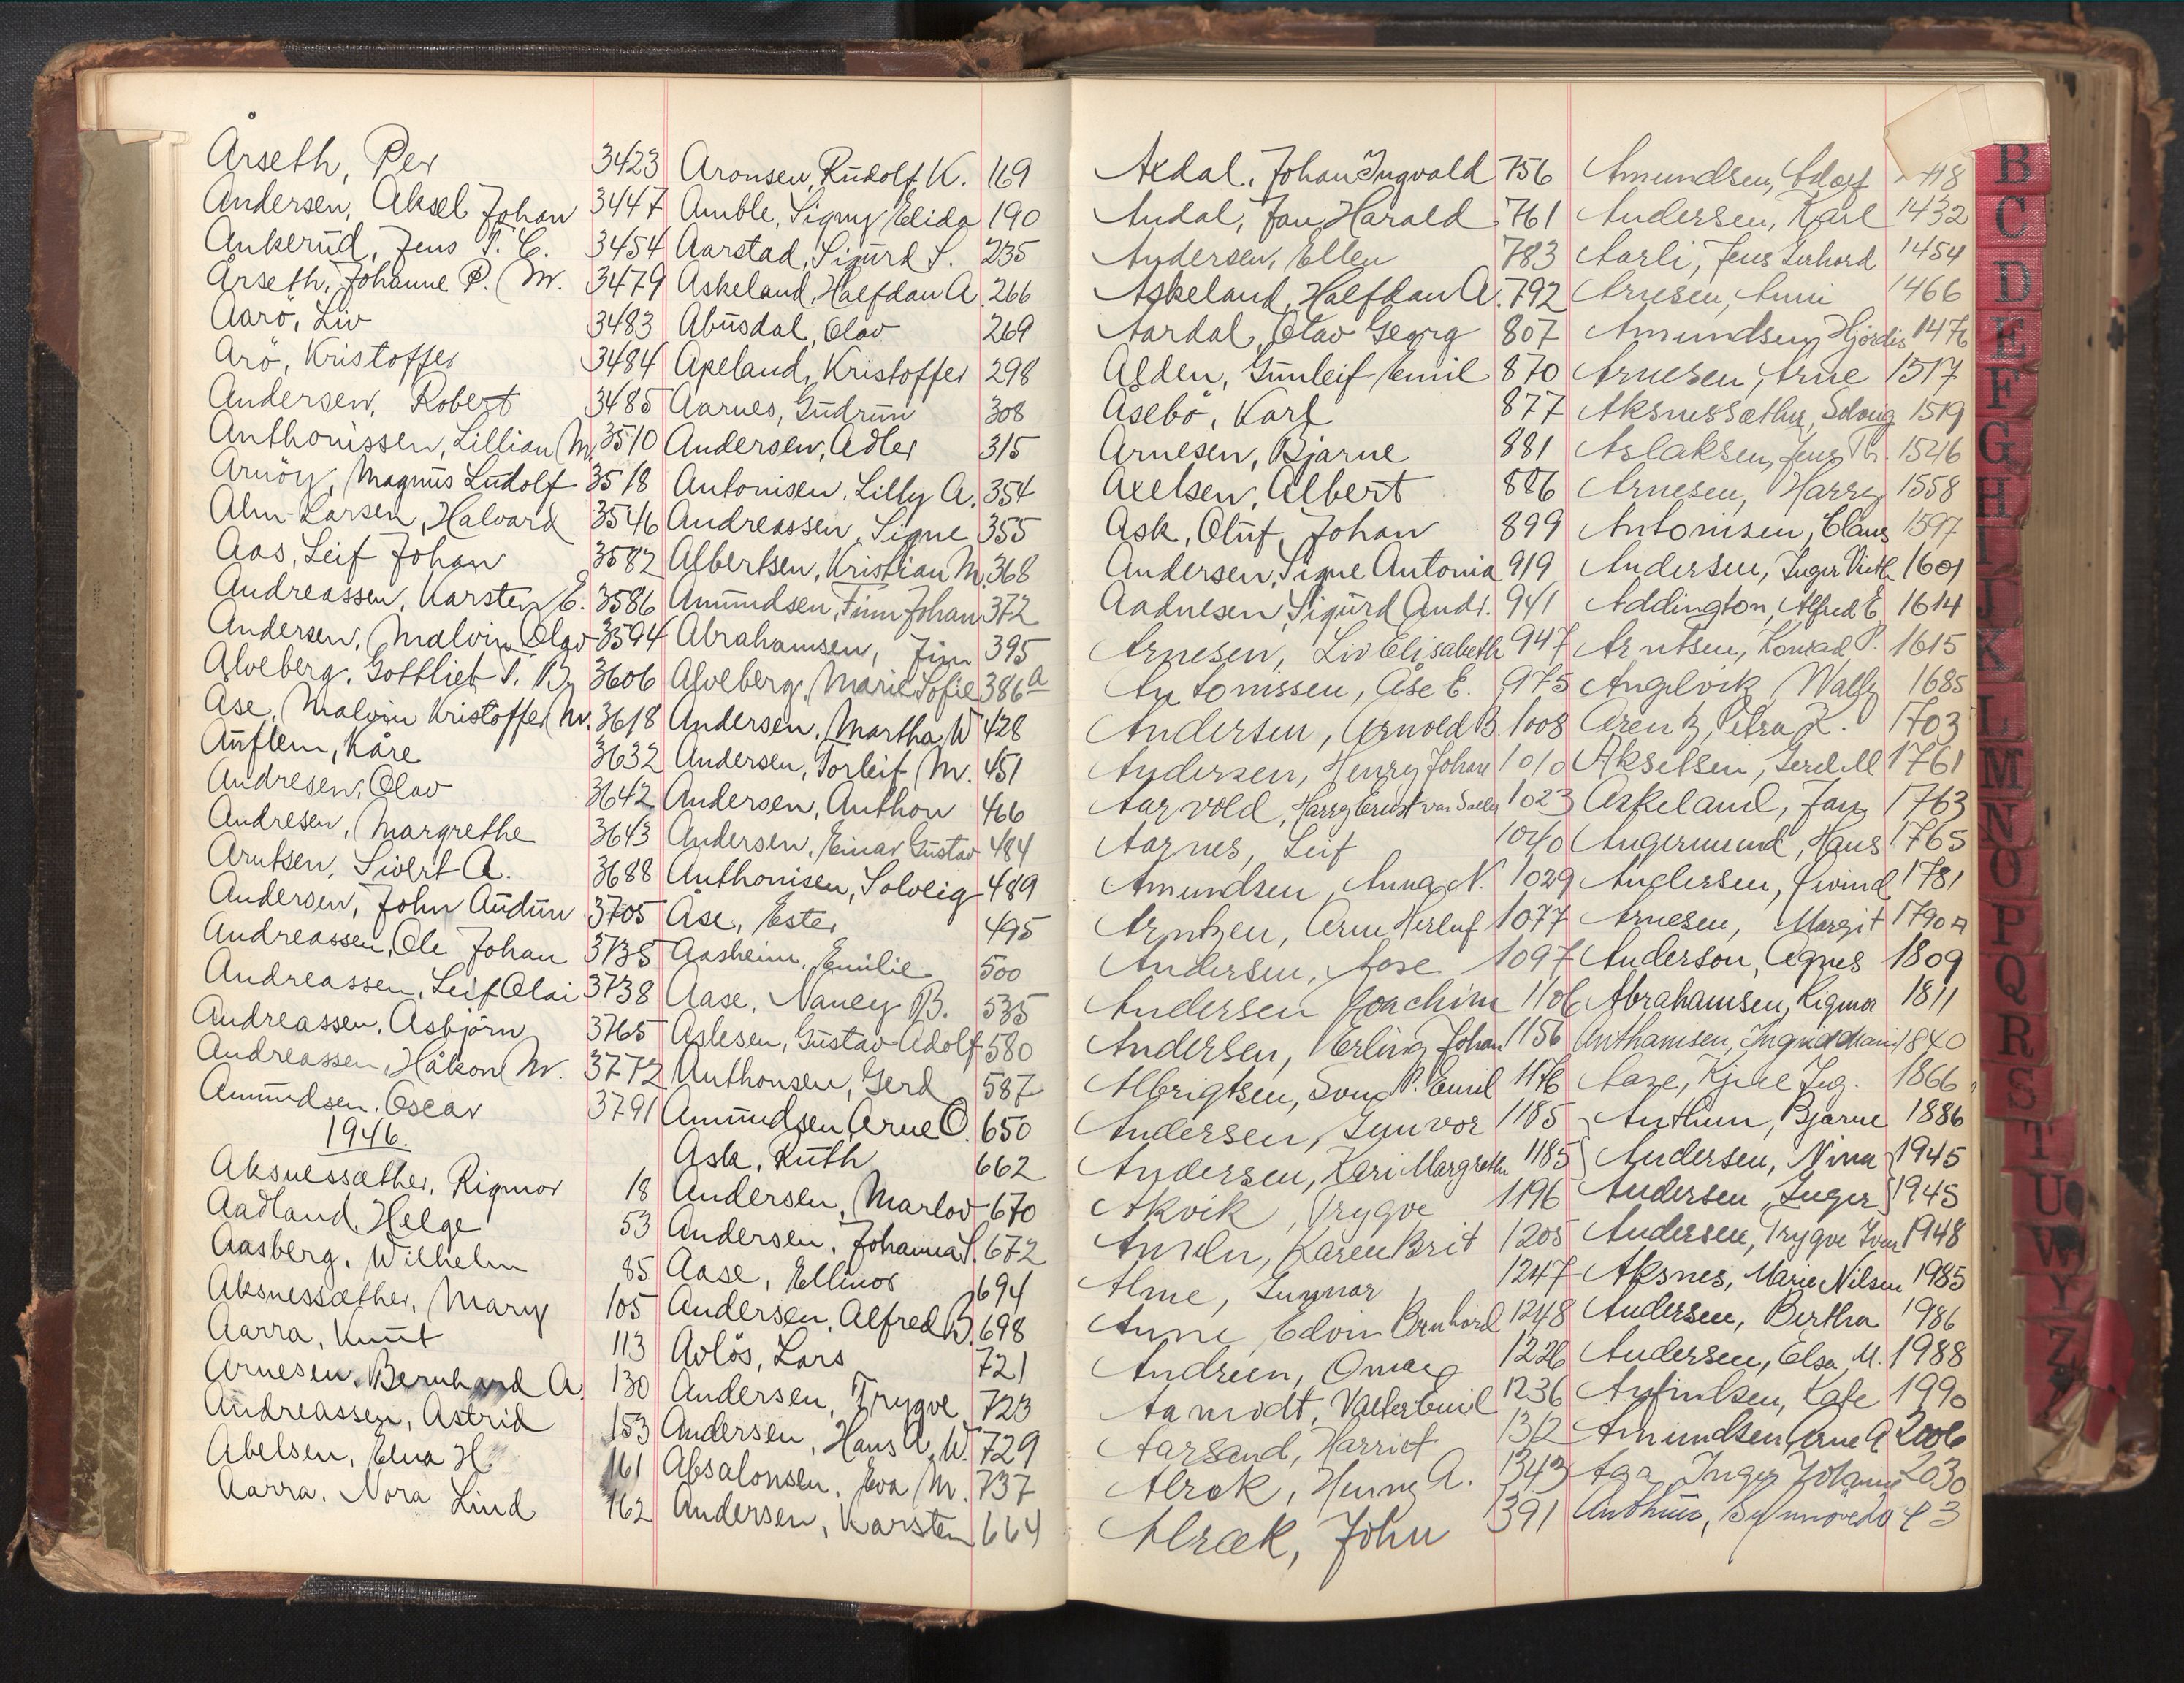 Årseth, Per 3423
Andersen, Aksel Johan 3447
Ankerud, Jens T. C. 3454
Årseth, Johanne P. M. 3479
Aarö, Liv 3483
Arö, Kristoffer 3484
Andersen, Robert 3485
Anthonissen, Lillian M. 3510
Arnöy, Magnus Ludolf 3518
Alm-Larsen, Halvard 3546
Aas, Leif Johan 3582
Andreassen, Karsten E. 3586
Andersen, Malvin Olav 3594
Alveberg, Gottlieb T. B. 3606
Åse, Malvin Kristoffer M. 3618
Auflem, Kåre 3632
Andresen, Olav 3642
Andresen, Margrethe 3643
Arntsen, Sivert A. 3688
Andersen, John Audun 3705
Andreassen, Ole Johan 3735
Andreassen, Leif Olai 3738
Andreassen, Asbjörn 3765
Andreassen, Håkon M. 3772
Amundsen, Oscar 3791
1946.
Aksnessæther, Rigmor 18
Aadland, Helge 53
Aasberg, Wilhelm 85
Aksnessæther, Mary 105
Aarra, Knut 113
Arnesen, Bernhard A. 130
Andreassen, Astrid 153
Abelsen, Elna H. 161
Aarra, Nora Lind 162
Aronsen, Rudolf K. 169
Amble, Signy Elida 190
Aarstad, Sigurd S. 235
Askeland, Halfdan A. 266
Abusdal, Olav 269
Apeland, Kristoffer 298
Aarnes, Gudrun 308
Andersen, Adler 315
Antonisen, Lilly A. 354
Andreassen, Signe 355
Albertsen, Kristian M. 368
Amundsen, Finn Johan 372
Abrahamsen, Finn 395
Alveberg, Marie Sofie 386a
Andersen, Martha W 428
Andersen, Torleif M. 451
Andersen, Anthon 466
Andersen, Einar Gustav 484
Anthonisen, Solveig 489
Åse, Ester 495
Aasheim, Emilie 500
Aase, Nancy B. 535
Aslesen, Gustav Adolf 580
Anthonsen, Gerd 587
Amundsen, Arne O. 650
Ask, Ruth 662
Andersen, Marlov 670
Andersen, Johanna S. 672
Aase, Ellinor 694
Andersen, Alfred B. 698
Avlös, Lars 721
Andersen, Trygve 723
Andersen, Hans A. W. 729
Absalonsen, Eva M. 737
Andersen, Karsten 664
Axdal, Johan Ingvald 756
Andal, Jan Harald 761
Andersen, Ellen 783
Askeland, Halfdan A. 792
Aardal, Olav Georg 807
Alden, Gunleif Emil 870
Åsebö, Karl 877
Arnesen, Bjarne 881
Axelsen, Albert 886
Ask, Oluf Johan 899
Andersen, Signe Antonia 919
Aadnesen, Sigurd Andr. 941
Arnesen, Liv Elisabeth 947
Antonissen, Åse E. 975
Andersen, Arnold B. 1008
Andersen, Henry Johan 1010
Aarvold, Harry Ernst van 1023
Aarnes, Leif 1040
Amundsen, Anna N. 1029
Arntzen, Arne Herluf 1077
Andersen, Aase 1097
Andersen Joachim 1106
Andersen, Erling Johan 1156
Albrigtsen, P. Emil 1176
Andersen, Gunvor 1185
Andersen, Kari Margrethe 1185
Akvik, Trygve 1196
Karen Brit 1205
Alme, Gunnar 1247
Edvin Bernhard 1248
1226
1236
Aarsand, Harriet 1312
Alræk, Henny A. 1343
Alræk, John 1391
Amundsen, Adolf
Andersen, Karl 1432
Aarli, Jens Gerhard 1454
Arnesen, Anni 1466
Amundsen, Hjördis 1476
Arnesen, Arne 1517
Aksnessæther, Solveig 1519
Aslaksen, Jens Th. 1546
Arnesen, Harry 1558
Antonisen, Claus 1597
Andersen, Inger 1601
Addington, Alfred E 1614
Arntsen, Konrad P. 1615
Angelvik, Wally 1685
Arentz, Petra K. 1703
Akselsen, Gerd M 1761
Askeland, Jan 1763
Angermund, Hans 1765
Andersen, Øivind 1781
Arnesen, Margit 1790
Anderson, Agnes 1809
Abrahamsen, Rigmor 1811
Ingrid Marie 1840
Aase, Kjell Ing. 1866
Anthun, Bjarne 1886
Andersen, Nina 1945
Andersen, Inger 1945
Andersen, Trygve Ivar 1948
Aksnes, Marie Nilsen 1985
Andersen, Birtha 1986
Andersen, Elsa M. 1988
Arfindsen, Kate 1990
Amundsen, Arne A 2006
Aga, Inger Johanne 2030
B
C
D
E
F
G
H
I
J
K
L
M
N
O
P
Q
R
S
T
U
W
Y
Z